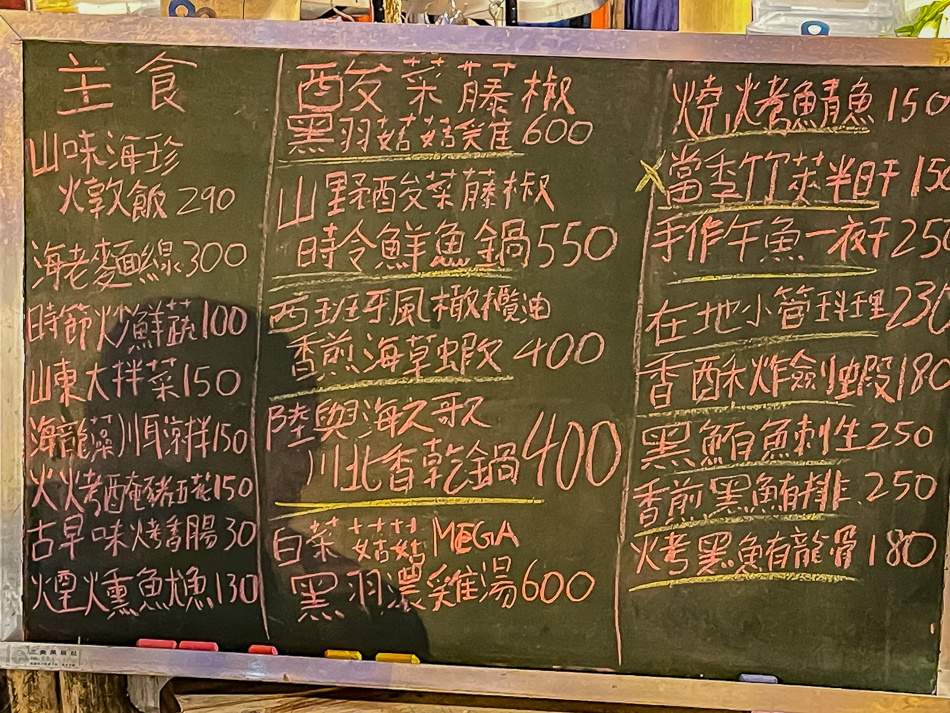 主食
山味海珍
炊飯290
海老麵線300
時節炒鮮蔬100
山東大拌菜150
海龍藻川耳涼拌150
火烤醃豬五花150
古早味烤香腸30
煙燻魚130
酸菜藤椒
黑羽菇菇雞600
山野酸菜藤椒
時令鮮魚鍋550
西班牙風橄欖油
香煎海草蝦400
陸與海之歌
川北香乾鍋400
白菜菇菇MEGA
黑羽濃雞湯600
燒烤鯖魚150
當季竹筴半日干150
手作午魚一夜干250
在地小管料理230
香酥炸劍蝦180
黑鮪魚刺生250
香煎黑鮪排250
烤黑鮪龍骨180